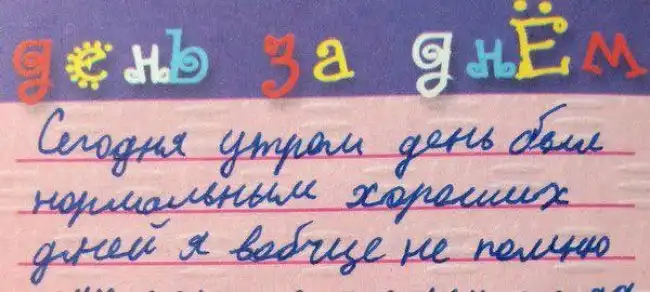 день за днЁм
Сегодня утром день был
нормальным хороших
дней я вобще не помню